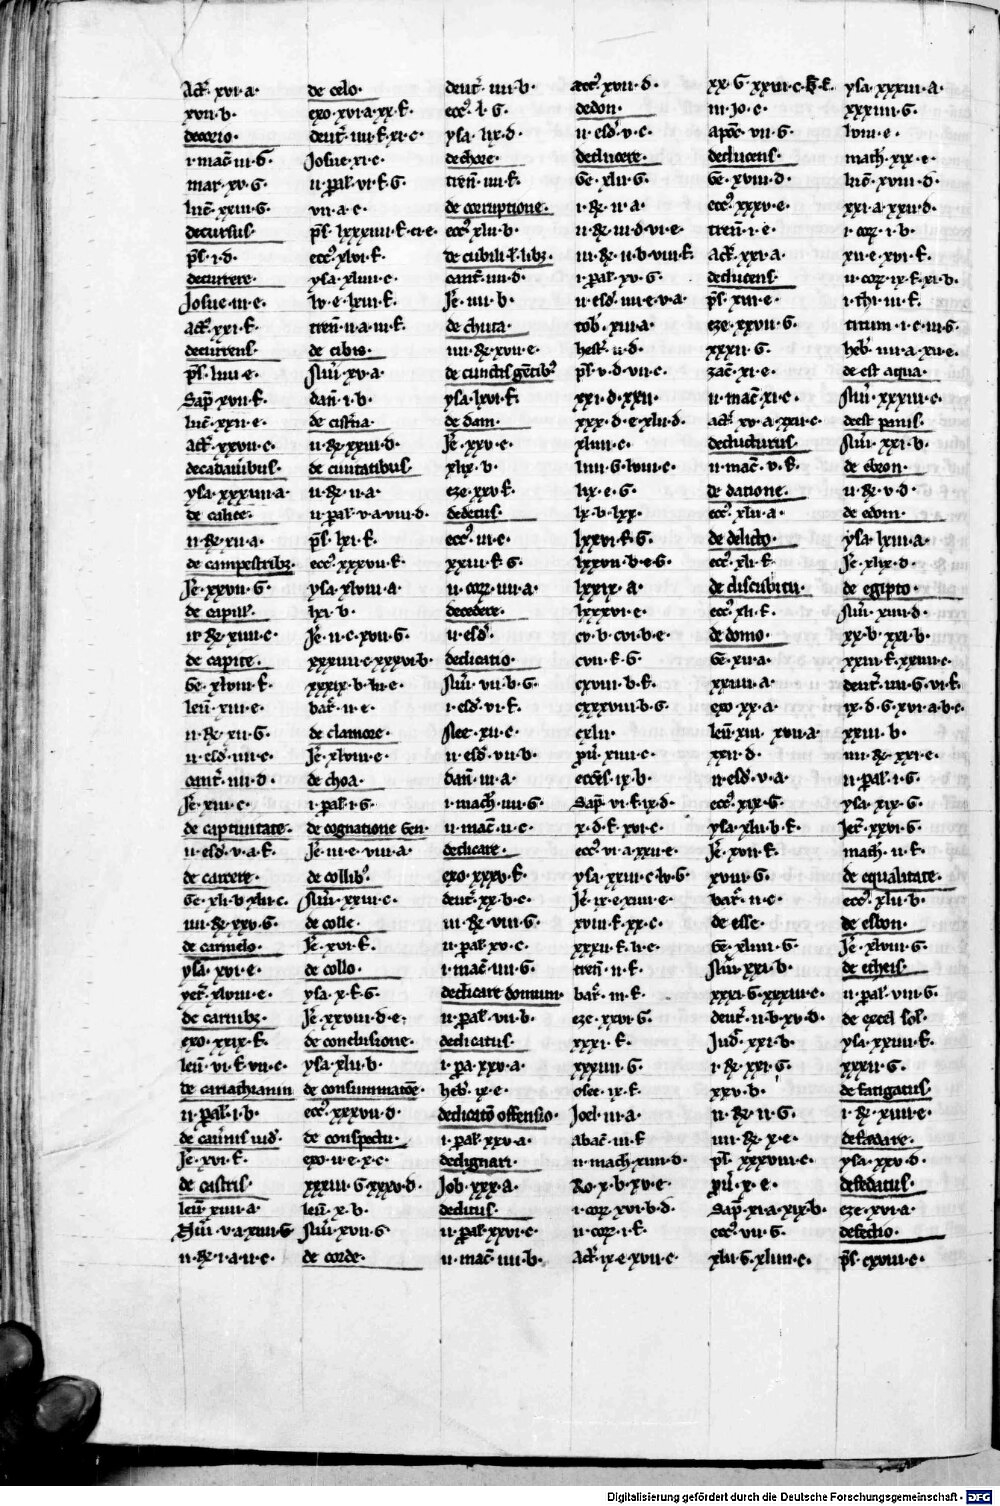 Act͛ xvi·a·
xvii·b·
decorio·
i·mac̄ iii·G·
mar·xv·G·
luc̄ xxiii·G·
decursus·
ps̄·i·d·
decurrere·
Josue·iii·e·
act͛ xxi·f·
decurrens·
ps̄·lvii·e·
Sap̄ xvii·f·
luc̄ xxii·e·
act͛ xxvii·c·
decadauibus·
ysa·xxxiiii·a·
de calice·
ii·R·xii·a·
de campestribꝫ·
Je·xxvii·G·
de capill͛·
ii·R·xiiii·c·
de capite·
Ge·xlviii·f·
leuͥ·xiii·e·
ii·R·xii·G·
ii·esd͛·iii·e·
cant͛·iiii·d·
Je·xiii·c·
de captiuitate·
ii·esd͛·v·a·f·
de carcere·
Ge·xli·b·xlii·c·
iiii·R·xxv·G·
de carmelo·
ysa·xvi·e·
yer͛·xlviii·e·
de carnibꝫ·
exo·xxix·f·
leuͥ·vi·f·vii·c·
de cariathiarim
ii·pal͛·i·b·
Je·xvi·f·
de castris·
leuͥ·xiiii·a·
n·R·i·a·ii·c·
de celo·
exo·xvi·a·xx·f·
deut͛·iiii·f·xi·c·
Josue·xi·c·
ii·pal͛·vi·f·G·
vii·a·c·
ecc͛·xlvi·f·
ysa·xliiii·c·
lv·e·lxiii·f·
tren̄·ii·a·iii·f·
de cibis·
Nu͛i·xv·a·
dan̄·i·b·
de cist͛na·
ii·R·xxiii·b·
de ciuitatibus·
ii·R·ii·a·
ii·pal͛·v·a·viii·d·
ps̄·lxi·f·
ecc͛·xxxvii·f·
ysa·xlviii·a·
lxi·b·
Je·ii·c·xvii·G·
xxxiiii·c·xxxvi·b·
bar͛·ii·e·
de clamore·
Je·xlviii·e·
de choa·
i·pal͛·i·G·
de cognatione Gen·
Je·iii·e·viii·a·
de collibꝫ·
Nu͛i·xxiii·c·
de colle·
Je·xvi·f·
de collo·
ysa·x·f·G·
Je·xxviii·d·e·
de conclusione·
ysa·xlii·b·
de consummatōe·
ecc͛·xxxvii·d·
de conspectu·
exo·ii·e·x·c·
xxxiii·G·xxxv·d·
leuͥ·x·b·
Nu͛i·xvii·G·
de corde·
deut͛·iiii·b·
ecc͛·l·G·
ysa·lix·d·
de chore·
tren̄·iiii·f·
de corruptione·
ecc͛·xlii·b·
cant͛·iiii·d·
Je·iiii·b·
de chuta·
iiii·R·xvii·e·
de cunctis gētibꝫ
ysa·lxvi·f·
de dam·
Je·xxv·c·
xlix·b·
eze·xxv·f·
dedecus·
ecc͛·iii·e·
xxiii·f·G·
ii·cor·iiii·a·
decedere·
ii·esd͛·
dedicatio·
Nu͛i·vii·b·G·
i·esd͛·vi·f·
Nee·xii·e·
ii·esd͛·vii·b·
dan̄·iii·a·
i·mach͛·iiii·G·
ii·mac̄·ii·c·
dedicare·
exo·xxxv·f·
deut͛·xx·b·c·
iii·R·viii·G·
ii·pal͛·xv·c·
i·mac̄·iiii·G·
dedicare domum·
ii·pal͛·vii·b·
dedicatus·
i·pa·xxv·a·
heb͛·ix·e·
i·pal͛·xxv·a·
dedignari·
Job·xxx·a·
deditus·
ii·pal͛·xxvi·c·
ii·mac̄·iiii·b·
ecc͛·xvii·d·
dedon·
ii·esd͛·v·c·
deducere·
Ge·xlii·G·
i·R·ii·a·
ii·R·iii·d·vi·e·
iii·R·ii·b·viii·f·
i·pal͛·xv·G·
ii·esd͛·iiii·e·v·a·
tob͛·xiii·a·
hest͛·ii·d·
ps̄·v·d·vii·c·
xxi·d·xxii·
xxx·d·e·xlii·d·
xliiii·c·
liiii·G·lviii·c·
lix·e·G·
lx·b·lxx·
lxxvi·f·G·
lxxvii·b·e·G·
lxxix·a·
lxxxvi·e·
cv·b·cvi·b·e·
cvii·f·G·
cxviii·b·f·
cxxxviii·b·G·
cxlii·
pu͛·xiiii·c·
eccēs·ix·b·
Sap̄·vi·f·ix·d·
x·d·f·xvi·c·
ecc͛·vi·a·xxii·e·
ysa·xxiii·c·lv·G·
Je͛·ix·e·xiii·e·
xviii·f·xx·c·
xxxii·f·li·e·
tren̄·ii·f·
bar͛·iii·f·
eze·xxvi·G·
xxxi·f·
xxxiiii·G·
osee·ix·f·
Joel·iii·a·
abac̄·iii·f·
ii·mach·xiiii·d·
Ro·x·b·xv·e·
i·cor·xvi·b·d·
ii·cor·i·f·
act͛·ix·e·xvii·c·
iii·Jo·c·
apoc̄·vii·G·
deducens·
Ge·xviii·d·
ecc͛·xxxv·e·
tren̄·i·e·
Act͛·xxi·a·
ps̄·xiii·e·
eze·xxvii·G·
xxxii·G·
zac̄·xi·e·
ii·mac̄·xi·c·
act͛·xv·a·xxi·c·
deducturus·
ii·mac̄·v·f·
de datione·
ecc͛·xlii·a·
de delicto·
ecc͛·xli·f·
de discubitu·
ecc͛·xli·f·
de domo·
Ge·xii·a·
xxiiii·a·
exo·xx·a·
leuͥ·xiii·xvii·a·
xxii·d·
ii·esd͛·v·a·
ecc͛·xix·G·
ysa·xlii·b·f·
Je·xvii·f·
xviii·G·
bar͛·ii·c·
de esse·
Ge·xliiii·G·
Nu͛i·xxi·b·
xxxi·G·xxxiii·c·
deut͛·ii·b·xv·d·
Jud͛·xxi·b·
i·R·xxi·G·
xxv·b·
ii·R·ii·G·
iiii·R·x·e·
ps̄·xxxviii·c·
pu͛·x·e·
Sap̄·xi·a·xix·b·
ecc͛·vii·G·
xlii·G·xliiii·c·
ysa·xxxiii·a·
xxxiiii·G·
lviii·e·
math͛·xix·e·
luc̄·xviii·d·
xxi·a·xxii·d·
i·cor·i·b·
xii·e·xvi·f·
ii·cor·ix·f·xi·b·
i·thi·iii·f·
titum·i·c·iii·G·
heb͛·iiii·a·xii·e·
de est aqua·
Nu͛i·xxxiii·c·
deest panis·
Nu͛i·xxi·b·
de ebron·
ii·R·v·d·
de edom·
ysa·lxiii·a·
Je·xlix·d·
de egipto·
Nu͛i·xiiii·d·
xx·b·xxi·b·
xxiii·f·xxiiii·c·
deut͛·iiii·G·vi·f·
ix·d·G·xvi·a·b·c·
xxiii·b·
iiii·R·xxi·e·
ii·pal͛·i·G·
ysa·xix·G·
Jer͛·xxvi·G·
math·ii·f·
de equalitate·
ecc͛·xlii·b·
de esbon·
Je·xlviii·G·
de etheis·
ii·pal͛·viii·G·
de excel͛ sol·
ysa·xxiiii·f·
xxxii·G·
defatigatus·
i·R·xiiii·e·
ysa·xxv·d·
defedatus·
eze·xvi·a·
defectio·
ps̄·cxviii·e·
Digitalisierung gefördert durch die Deutsche Forschungsgemeinschaft - DFG